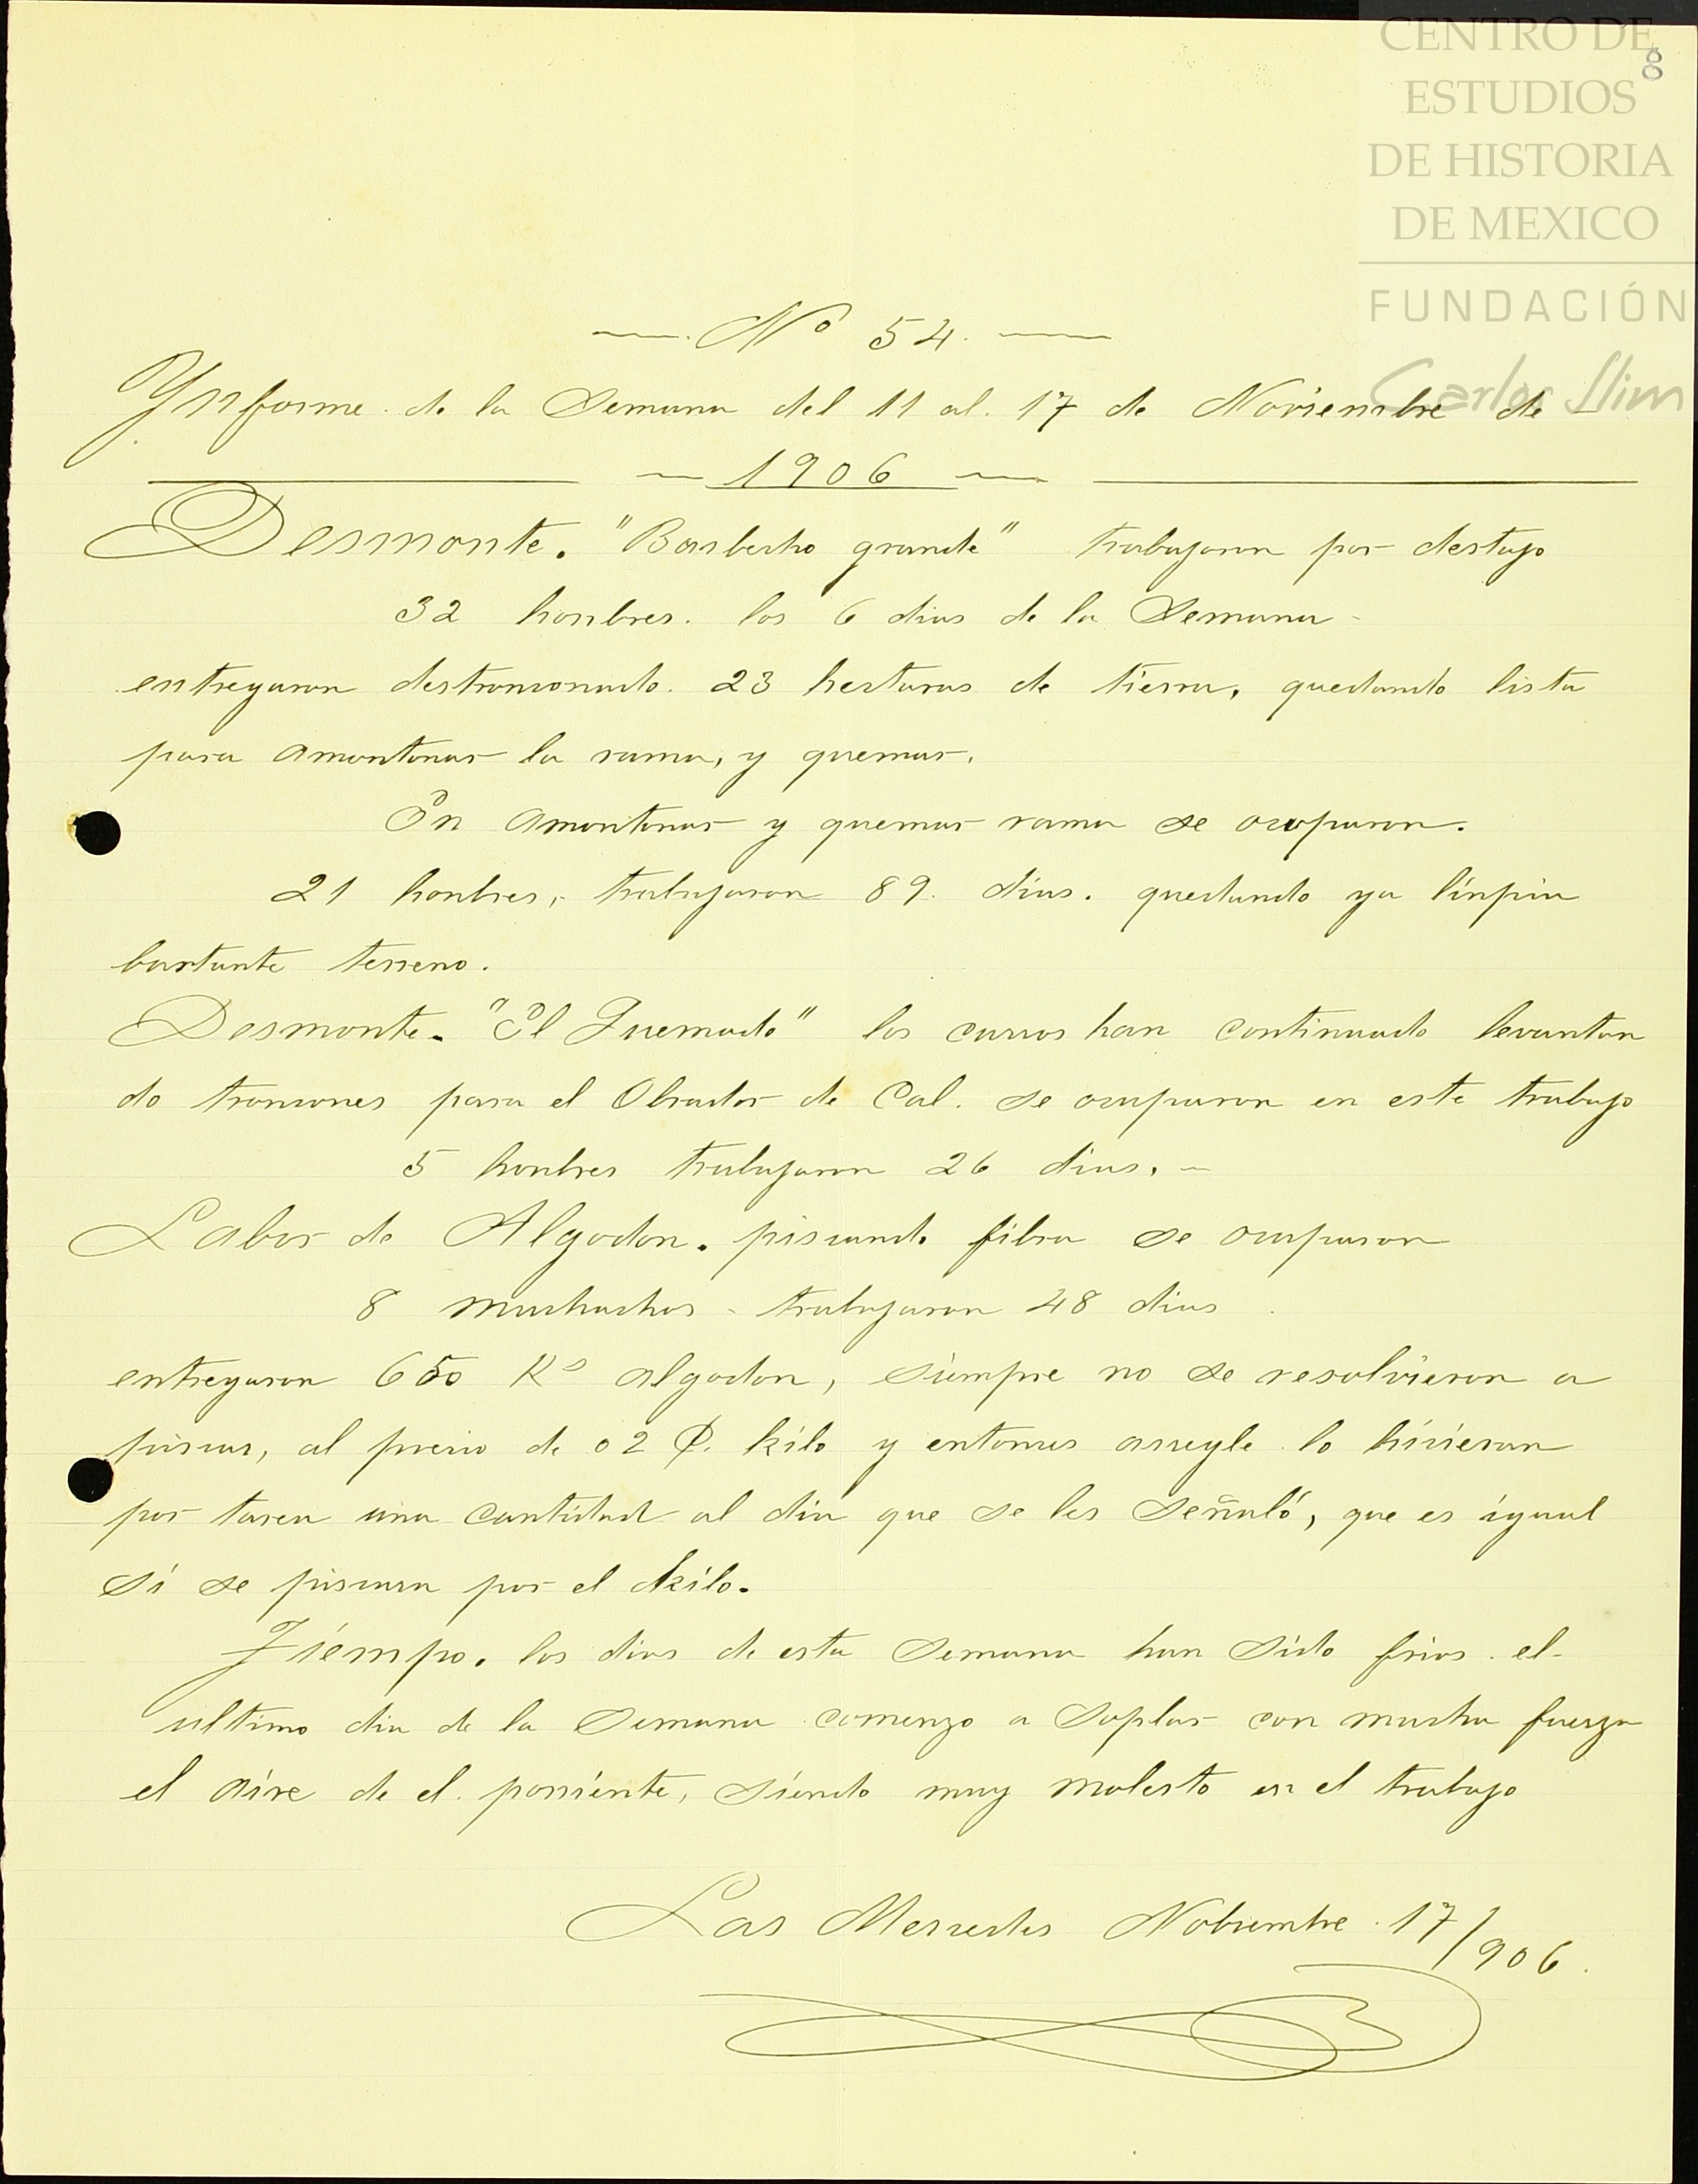 CENTRO DE
ESTUDIOS
DE HISTORIA
DE MEXICO
FUNDACIÓN
Carlos Slim
8
—. Nº 54. —
Ynforme de la Semana del 11 al. 17 de Noviembre de
— 1906 —
Desmonte. "Barbecho grande" trabajaron por destajo
32 honbres. los 6 dias de la Semana -
entregaron destronconado. 23 hectaras de tierra, quedando lista
para amontonar la rama, y quemar.
En amontonar y quemar rama se ocuparon.
21 honbres, trabajaron 89. dias. quedando ya linpia
bastante terreno.
Desmonte. "El Quemado" los carros han continuado levantan
do troncones para el Obrador de Cal. se ocuparon en este trabajo
5 honbres trabajaron 26 dias. -
Labor de Algodon. piscando fibra se ocuparon
8 muchachos - trabajaron 48 dias
entregaron 650 Ks algodon, siempre no se resolvieron a
piscar, al precio de 02 ₵. kilo y entonces arregle lo hicieran
por tarea una cantidad al dia que se les señaló, que es igual
si se piscara por el kilo.
Tiempo. los dias de esta semana han sido frios. el-
ultimo dia de la semana comenzo a soplar con mucha fuerza
el aire de el. poniente, siendo muy molesto en el trabajo
Las Mercedes Nobiembre. 17/906.